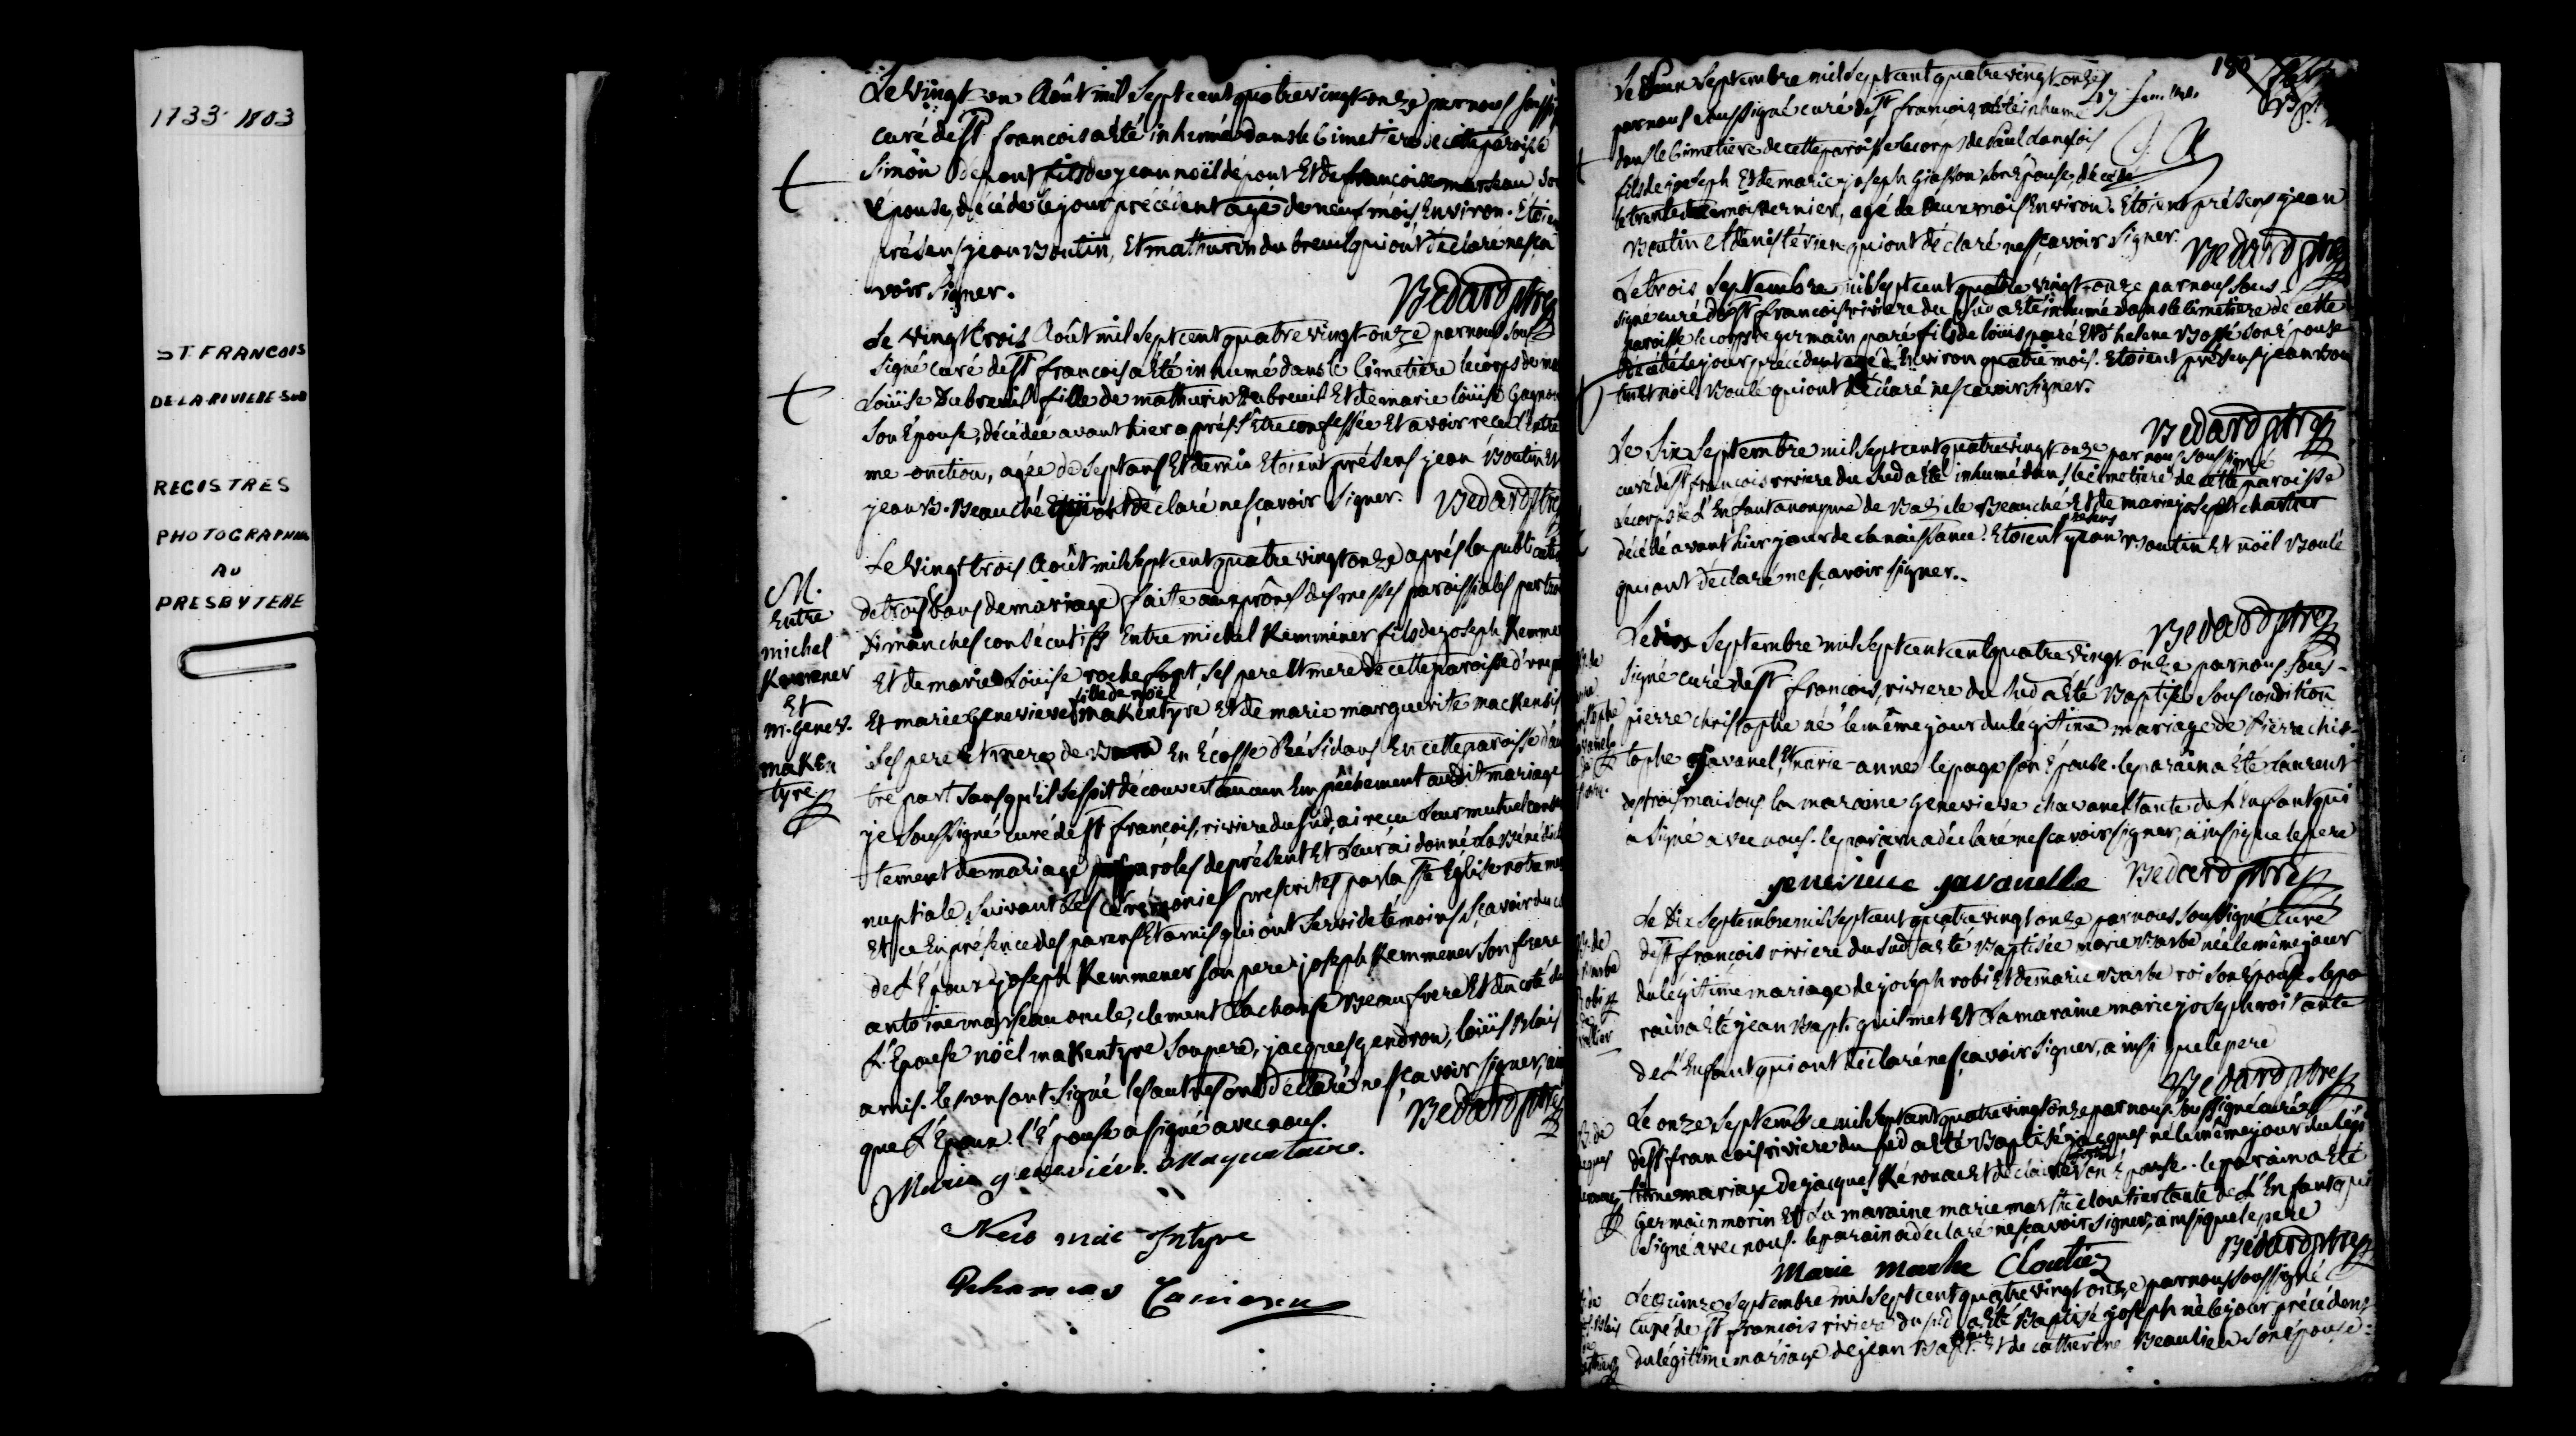 1733-1803
ST. FRANCOIS
DE LA RIVIERE-SUD
REGISTRES
PHOTOGRAPHIES
AU
PRESBYTERE
Le vingt-un Août mil Sept cent quatre vingt-onze par nous soussi
curé de St françois a été inhumé dans le Cimetiere de cette paroisse
Simon dépont fils de jean noïl dépont Et de françoise marseau Son
Epouse, decédé le jour précédent agé de neuf mois Environ. Etoien
présens jean Boutin, Et mathurin dubreuil qui ont déclaré ne sça
voir Signer.
Bedard ptre
Le vingt trois Août mil sept cent quatre vingt-onze par nous sous
Signé curé de St françois a été inhumé dans le Cimetiere le corps de
Loüise Dubreuil fille de mathurin Dubreuil Et de marie loüise Gagnon
Son Epouse, décédée avant hier aprés S'Etre confessée Et avoir reçu l'Extre
me-onction, agée de Sept ans Et demie Etoient présens jean Boutin Et
jean B. Beauché qui ont déclaré ne sçavoir Signer.
Bedard ptre
M.
Entre
michel
Kemmener
Et
m. Genev.
maKen
tyre
Le Vingt trois Août mil Sept cent quatre vingt onze aprés la publicatio
de trois bans de mariage faite aux prônes des messes paroissiales par trois
Dimanches consécutifs Entre michel Kemmener fils de joseph Kemme
Et de marie Loüise rochefort, Ses pere Et mere de cette paroisse d'une p
Et marie Genevieve fille de noël maKentyre Et de marie marguerite mackensis
Ses pere Et mere de En Ecosse Résidans En cette paroisse d'au
tre part Sans qu'il Se soit découvert aucun Empêchement audit mariage
je Soussigné curé de St françois, riviere du Sud, ai reçu leur mutuel consen
tement de mariage paroles de présent Et leur ai donné la Bénédic
nuptiale Suivant les Cérémonies prescrites par la Ste Eglise notre me
Et ce En présence des parens Et amis qui ont Servi de témoins, Sçavoir du c
de L'Epoux joseph Kemmener Son pere joseph Kemmener Son frere
antoine marseau oncle, clement Lachance Beaufrere Et du coté de
L'Epouse nöel maKentyre Son pere, jacques gendron, loüis Blais
amis. les uns ont Signé les autres ont déclaré ne sçavoir Signer, ain
que L'Epoux. l'Epouse a signé avec nous.
Bedard ptre
Marie genevièv. Maquataire.
Neio mac Intyre
Thomas Cameron
180
Le Deux Septembre mil Sept cent quatre vingt-onze
par nous Soussigné curé de St françois a été inhumé
dans le Cimetiere de cette paroisse le corps de Paul Langlois
fils de joseph Et de marie joseph Giasson Son Epouse, décédé
le trente du mois dernier, agé de Deux mois Environ. Etoient présens jean
Boutin Et denis térien qui ont déclaré ne sçavoir Signer.
Bedard ptre
Le trois Septembre mil Sept cent quatre vingt-onze par nous Sous-
signé curé de St françois riviere du Sud a été inhumé dans le Cimetiere de cette
paroisse le corps de germain paré fils de loüis paré Et d'helene Bossé Son Epouse
Décédé le jour précédent agé d'Environ quatre mois. Etoient présens jean Bou
tin Et noël Boulé qui ont déclaré ne sçavoir Signer.
Bedard ptre
Le Six Septembre mil Sept cent quatre vingt-onze par nous Soussigné
curé de St françois riviere du Sud a été inhumé dans le Cimetiere de cette paroisse
Le corps de L'Enfant anonyme de Bazile Beauché Et de marie joseph chartier
décédé avant hier jour de Sa naissance. Etoient présens jean Boutin Et noël Boulé
qui ont déclaré ne sçavoir Signer.
Bedard ptre
Le Septembre mil Sept cent cent quatre vingt onze par nous Sous-
Signé curé de St françois, riviere du Sud a été Baptisé Sous condition
pierre christophe né le même jour du légitime mariage de Pierre chris-
tophe Javanel, Et marie-anne lepage Son Epouse. le parain a été Laurent
destroismaisons la maraine Genevieve chavanel tante de L'Enfant qui
a Signé avec nous. le parain a déclaré ne sçavoir Signer, ainsi que le pere
genevieve javanelle
Bedard ptre
Le Dix Septembre mil Sept cent quatre vingt onze par nous Soussigné curé
de St françois riviere du Sud a été Baptisée marie Barbe née le même jour
du légitime mariage de joseph robi Et de marie Barbe roi Son Epouse. le pa
rain a été jean Bapt. guilmet Et La maraine marie joseph roi tante
de L'Enfant qui ont déclaré ne sçavoir Signer, ainsi que le pere
Bedard ptre
Le onze Septembre mil Sept cent quatre vingt onze par nous Soussigné curé
de St françois riviere du Sud a été Baptisé jacques né le même jour du légi
time mariage de jacques Et de claire Son Epouse. le parain a été
Germain morin Et La maraine marie marthe cloutier tante de L'Enfant qui
Signé avec nous. le parain a déclaré ne sçavoir Signer, ainsi que le pere
Bedard ptre
Marie Marthe Cloutiez
Le quinze Septembre mil Sept cent quatre vingt onze par nous Soussigné
Curé de St françois riviere du Sud a été Baptisé joseph né le jour précédent
du légitime mariage de jean Bapt. Et de catherine Beaulieu Son Epouse.